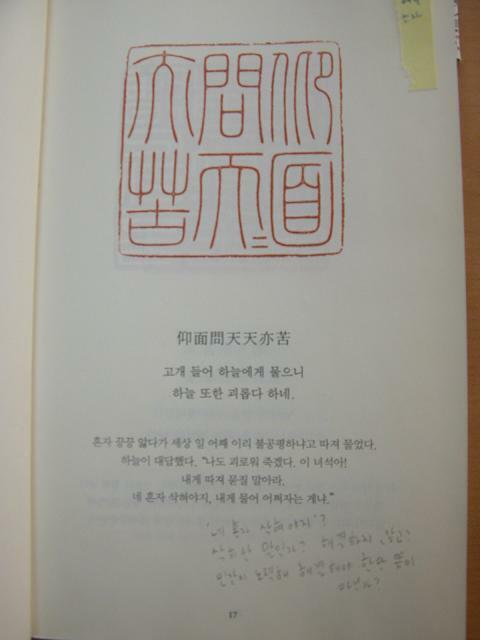 仰面
問天二
亦苦
仰面問天天亦苦
고개 들어 하늘에게 물으니
하늘 또한 괴롭다 하네.
혼자 끙끙 앓다가 세상 일 어째 이리 불공평하냐고 따져 물었다.
하늘이 대답했다. “나도 괴로워 죽겠다. 이 녀석아!
내게 따져 묻질 말아라.
네 혼자 삭혀야지, 내게 물어 어쩌자는 게냐.”
'네 혼자 삭혀야지'?
삭히란 말인가? 해결하지 않고?
인간이 노력해 해결해야 한단 뜻이
아닌가?
17